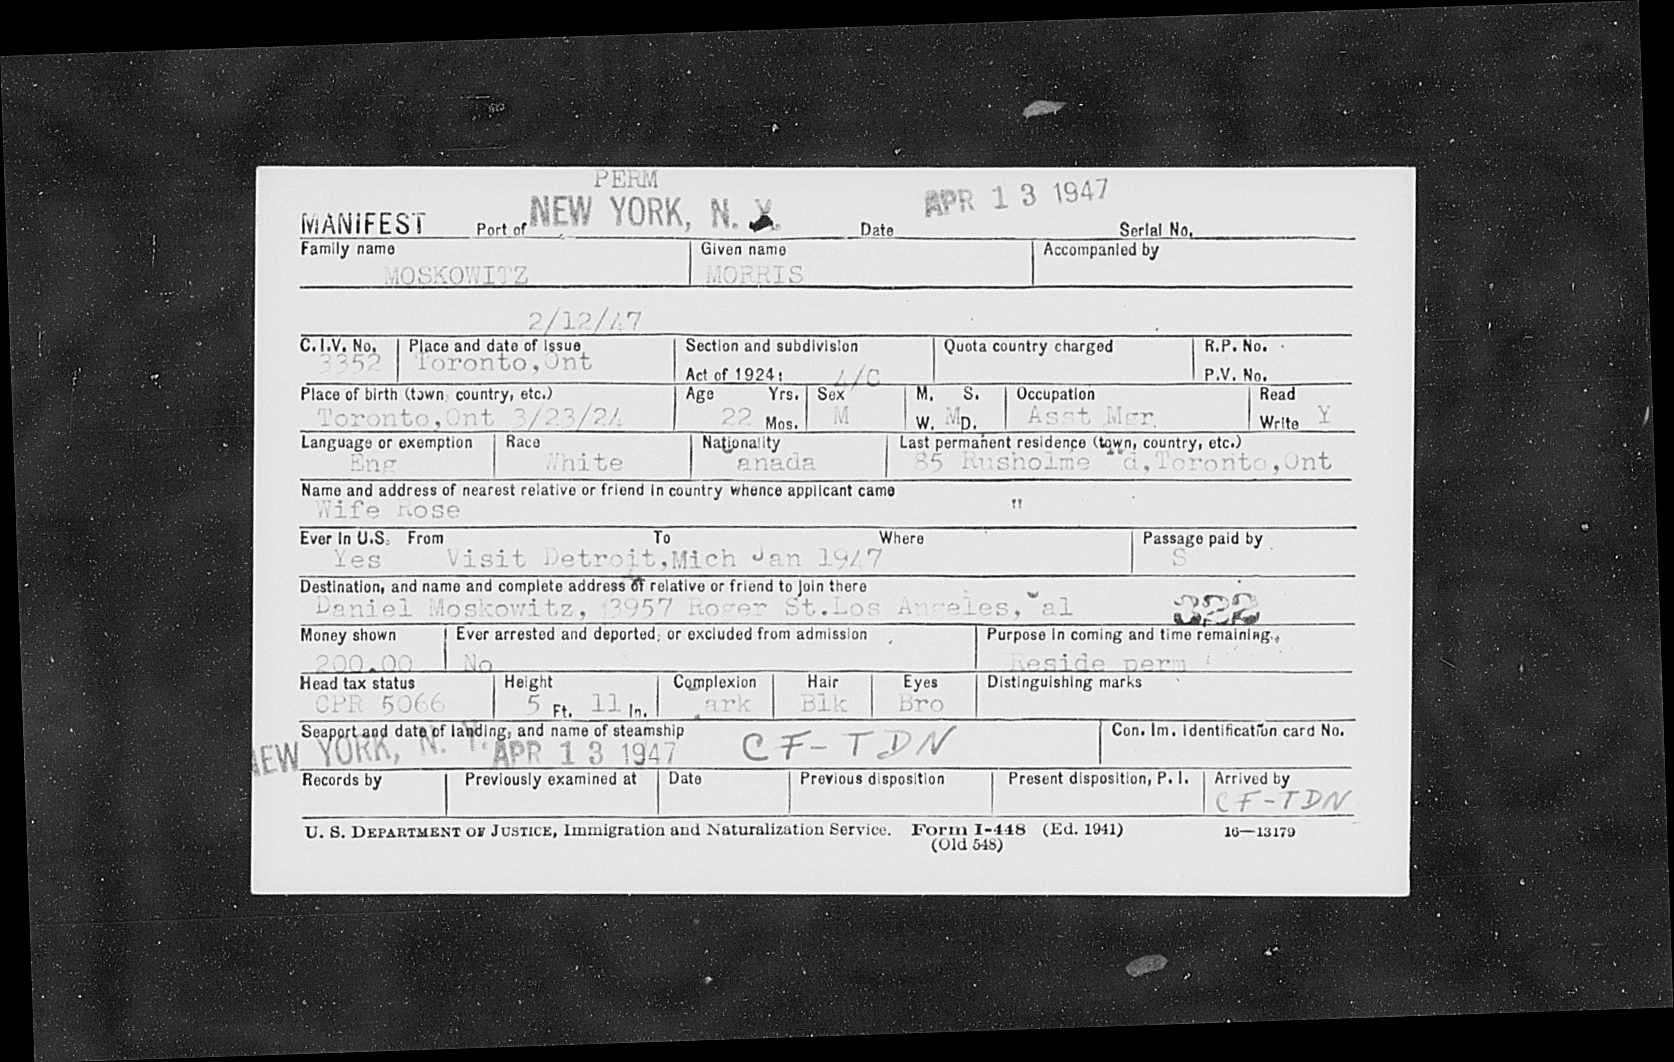 PERM
MANIFEST Port of NEW YORK, N. Y. Date APR 13 1947 Serial No.
Family name Given name Accompanied by
MOSKOWITZ MORRIS
2/12/47
C.I.V. No. Place and date of issue Section and subdivision Quota country charged R.P. No.
3352 Toronto,Ont Act of 1924: 4/C P.V. No.
Place of birth (town, country, etc.) Age Yrs. Sex M. S. Occupation Read
Toronto,Ont 3/23/24 22 Mos. M W. M D. Asst Mgr. Write Y
Language or exemption Race Nationality Last permanent residence (town, country, etc.)
Eng White Canada 85 Rusholme Rd,Toronto,Ont
Name and address of nearest relative or friend in country whence applicant came
Wife Rose "
Ever in U.S. From To Where Passage paid by
Yes Visit Detroit,Mich Jan 1947 S
Destination, and name and complete address of relative or friend to join there
Daniel Moskowitz, 3957 Roger St.Los Angeles,Cal 322
Money shown Ever arrested and deported, or excluded from admission Purpose in coming and time remaining
200.00 No Reside perm
Head tax status Height Complexion Hair Eyes Distinguishing marks
CPR 5066 5 Ft. 11 In. Dark Blk Bro
Seaport and date of landing, and name of steamship Con. Im. Identification card No.
NEW YORK, N. Y. APR 13 1947 CF-TDN
Records by Previously examined at Date Previous disposition Present disposition, P. I. Arrived by
CF-TDN
U. S. DEPARTMENT OF JUSTICE, Immigration and Naturalization Service. Form I-448 (Ed. 1941) 16—13179
(Old 548)